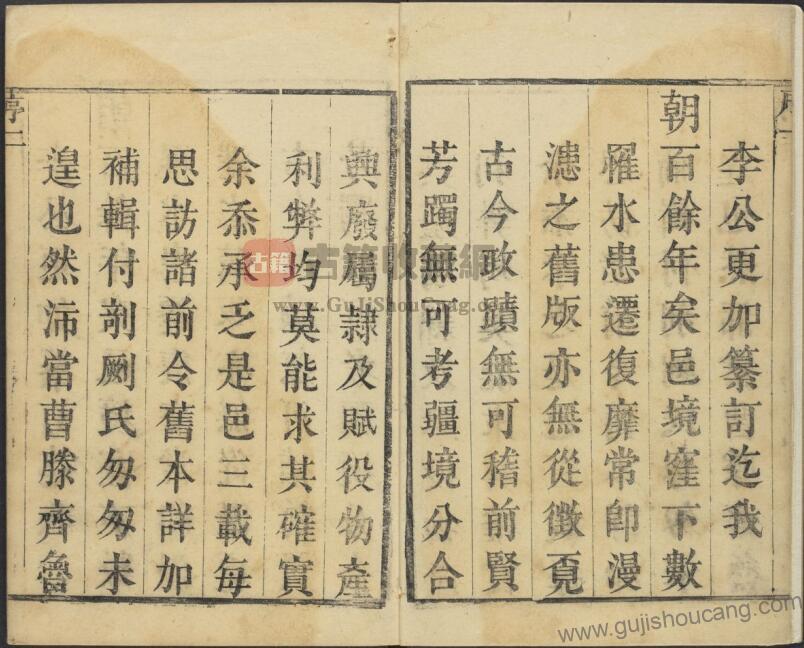 李公更加纂訂迄我
朝百餘年矣邑境窪下數
罹水患遷復靡常即漫
漶之舊版亦無從徵覔
古今政蹟無可稽前賢
芳躅無可考疆境分合
興廢屬隷及賦役物產
利弊均莫能求其確實
余忝承乏是邑三載每
思訪諸前令舊本詳加
補輯付剞劂氏匆匆未
遑也然沛當曹滕齊魯
序二
古籍
古籍收藏網
www.GuJiShouCang.com
www.gujishoucang.com